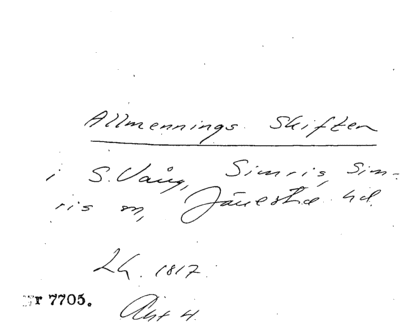 Allmennings Skiften
i S. Vång, Simris, Sim-
ris sn, Järrestad hd.
Lh. 1817.
Nr 7705.
Akt 4